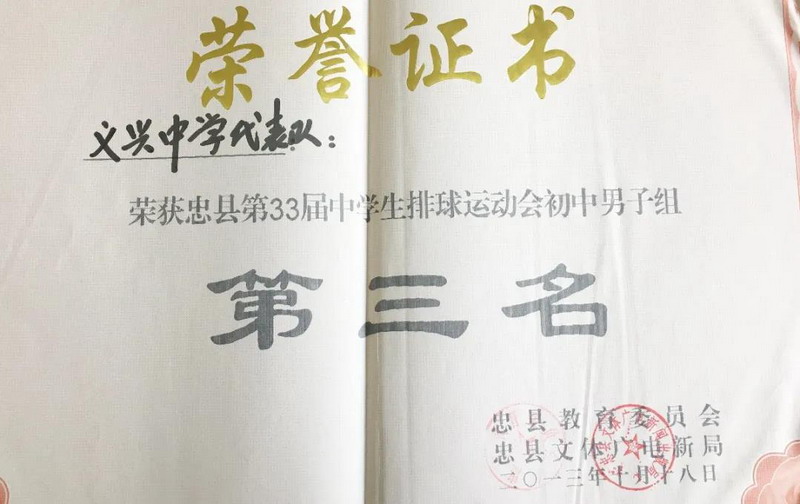 荣誉证书
义兴中学代表队：
荣获忠县第33届中学生排球运动会初中男子组
第三名
忠县教育委员会
忠县文体广电新局
二〇一三年十月十八日